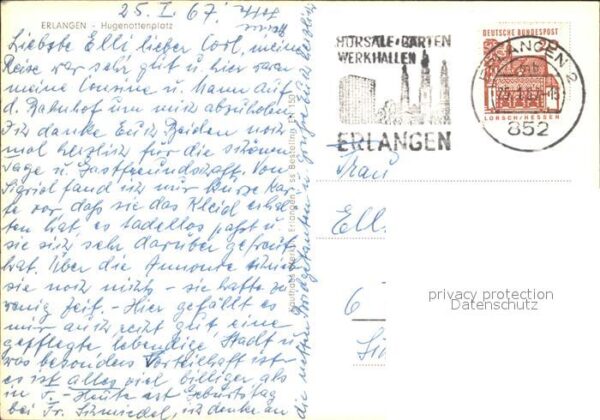 25. I. 67.
ERLANGEN - Hugenottenplatz
Liebste Elli lieber Cort, meine
Reise war sehr gut u hier waren
meine Cousine u. Mann auf
d. Bahnhof um mich abzuholen
Ich danke Euch Beiden noch
mal herzlich für die schönen
Tage u. Gastfreundschaft. Von
Sigrid fand ich nur kurze Kar
te vor daß sie das Kleid erhal
ten hat, es tadellos paßt u
sie sich sehr darüber gefreut
hat. Über die Annonce schrieb
sie noch nichts - sie hatte zu
wenig Zeit. - Hier gefällt es
mir auch recht gut eine
gepflegte lebendige Stadt u
was besonders vorteilhaft ist
es ist alles viel billiger als
in - Heute ist Geburtstag
bei Fr. Schmiedel, ich denke an
die netten u grüße Euch herzlich
HÖRSÄLE·GÄRTEN
WERKHALLEN
ERLANGEN
DEUTSCHE BUNDESPOST
LORSCH/HESSEN
ERLANGEN 2
852
Frau
Ell
6
privacy protection
Datenschutz